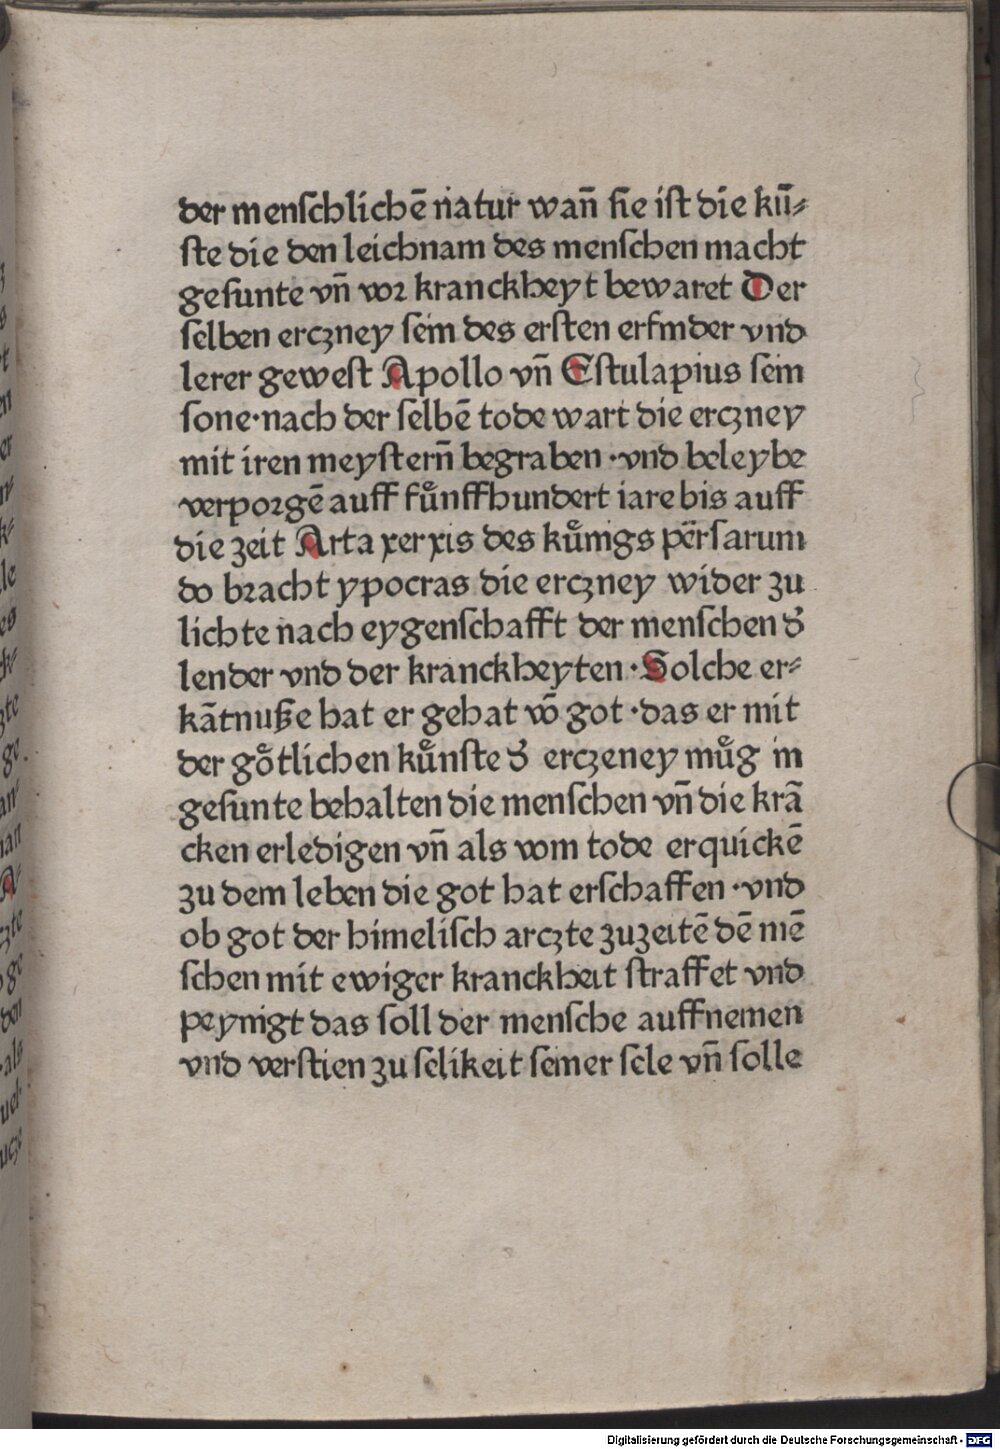 der menſchlichē natur wañ ſie iſt die kū⸗
ſte die den leichnam des menſchen macht
geſunte vñ voꝛ kranckheyt bewaret Der
ſelben erczney ſein des erſten erfinder vnd
lerer geweſt Apollo vñ Eſtulapius ſein
ſone·nach der ſelbē tode wart die erczney
mit iren meyſterñ begraben ·vnd beleybe
verpoꝛgē auff fuͦnffhundert iare bis auff
die zeit Arta xerxis des kuͦnigs pērſarum
do bꝛacht ypocras die erczney wider zu
lichte nach eygenſchafft der menſchen dˀ
lender vnd der kranckheyten ·Solche er⸗
kātnuße hat er gehat vō got ·das er mit
der goͤtlichen kuͦnſte dˀ erczeney muͦg in
geſunte behalten die menſchen vñ die krā
cken erledigen vñ als vom tode erquickē
zu dem leben die got hat erſchaffen ·vnd
ob got der himeliſch arczte zuzeitē dē mē
ſchen mit ewiger kranckheit ſtraffet vnd
peynigt das ſoll der menſche auffnemen
vnd verſtien zu ſelikeit ſeiner ſele vñ ſolle
Digitalisierung gefördert durch die Deutsche Forschungsgemeinschaft - DFG